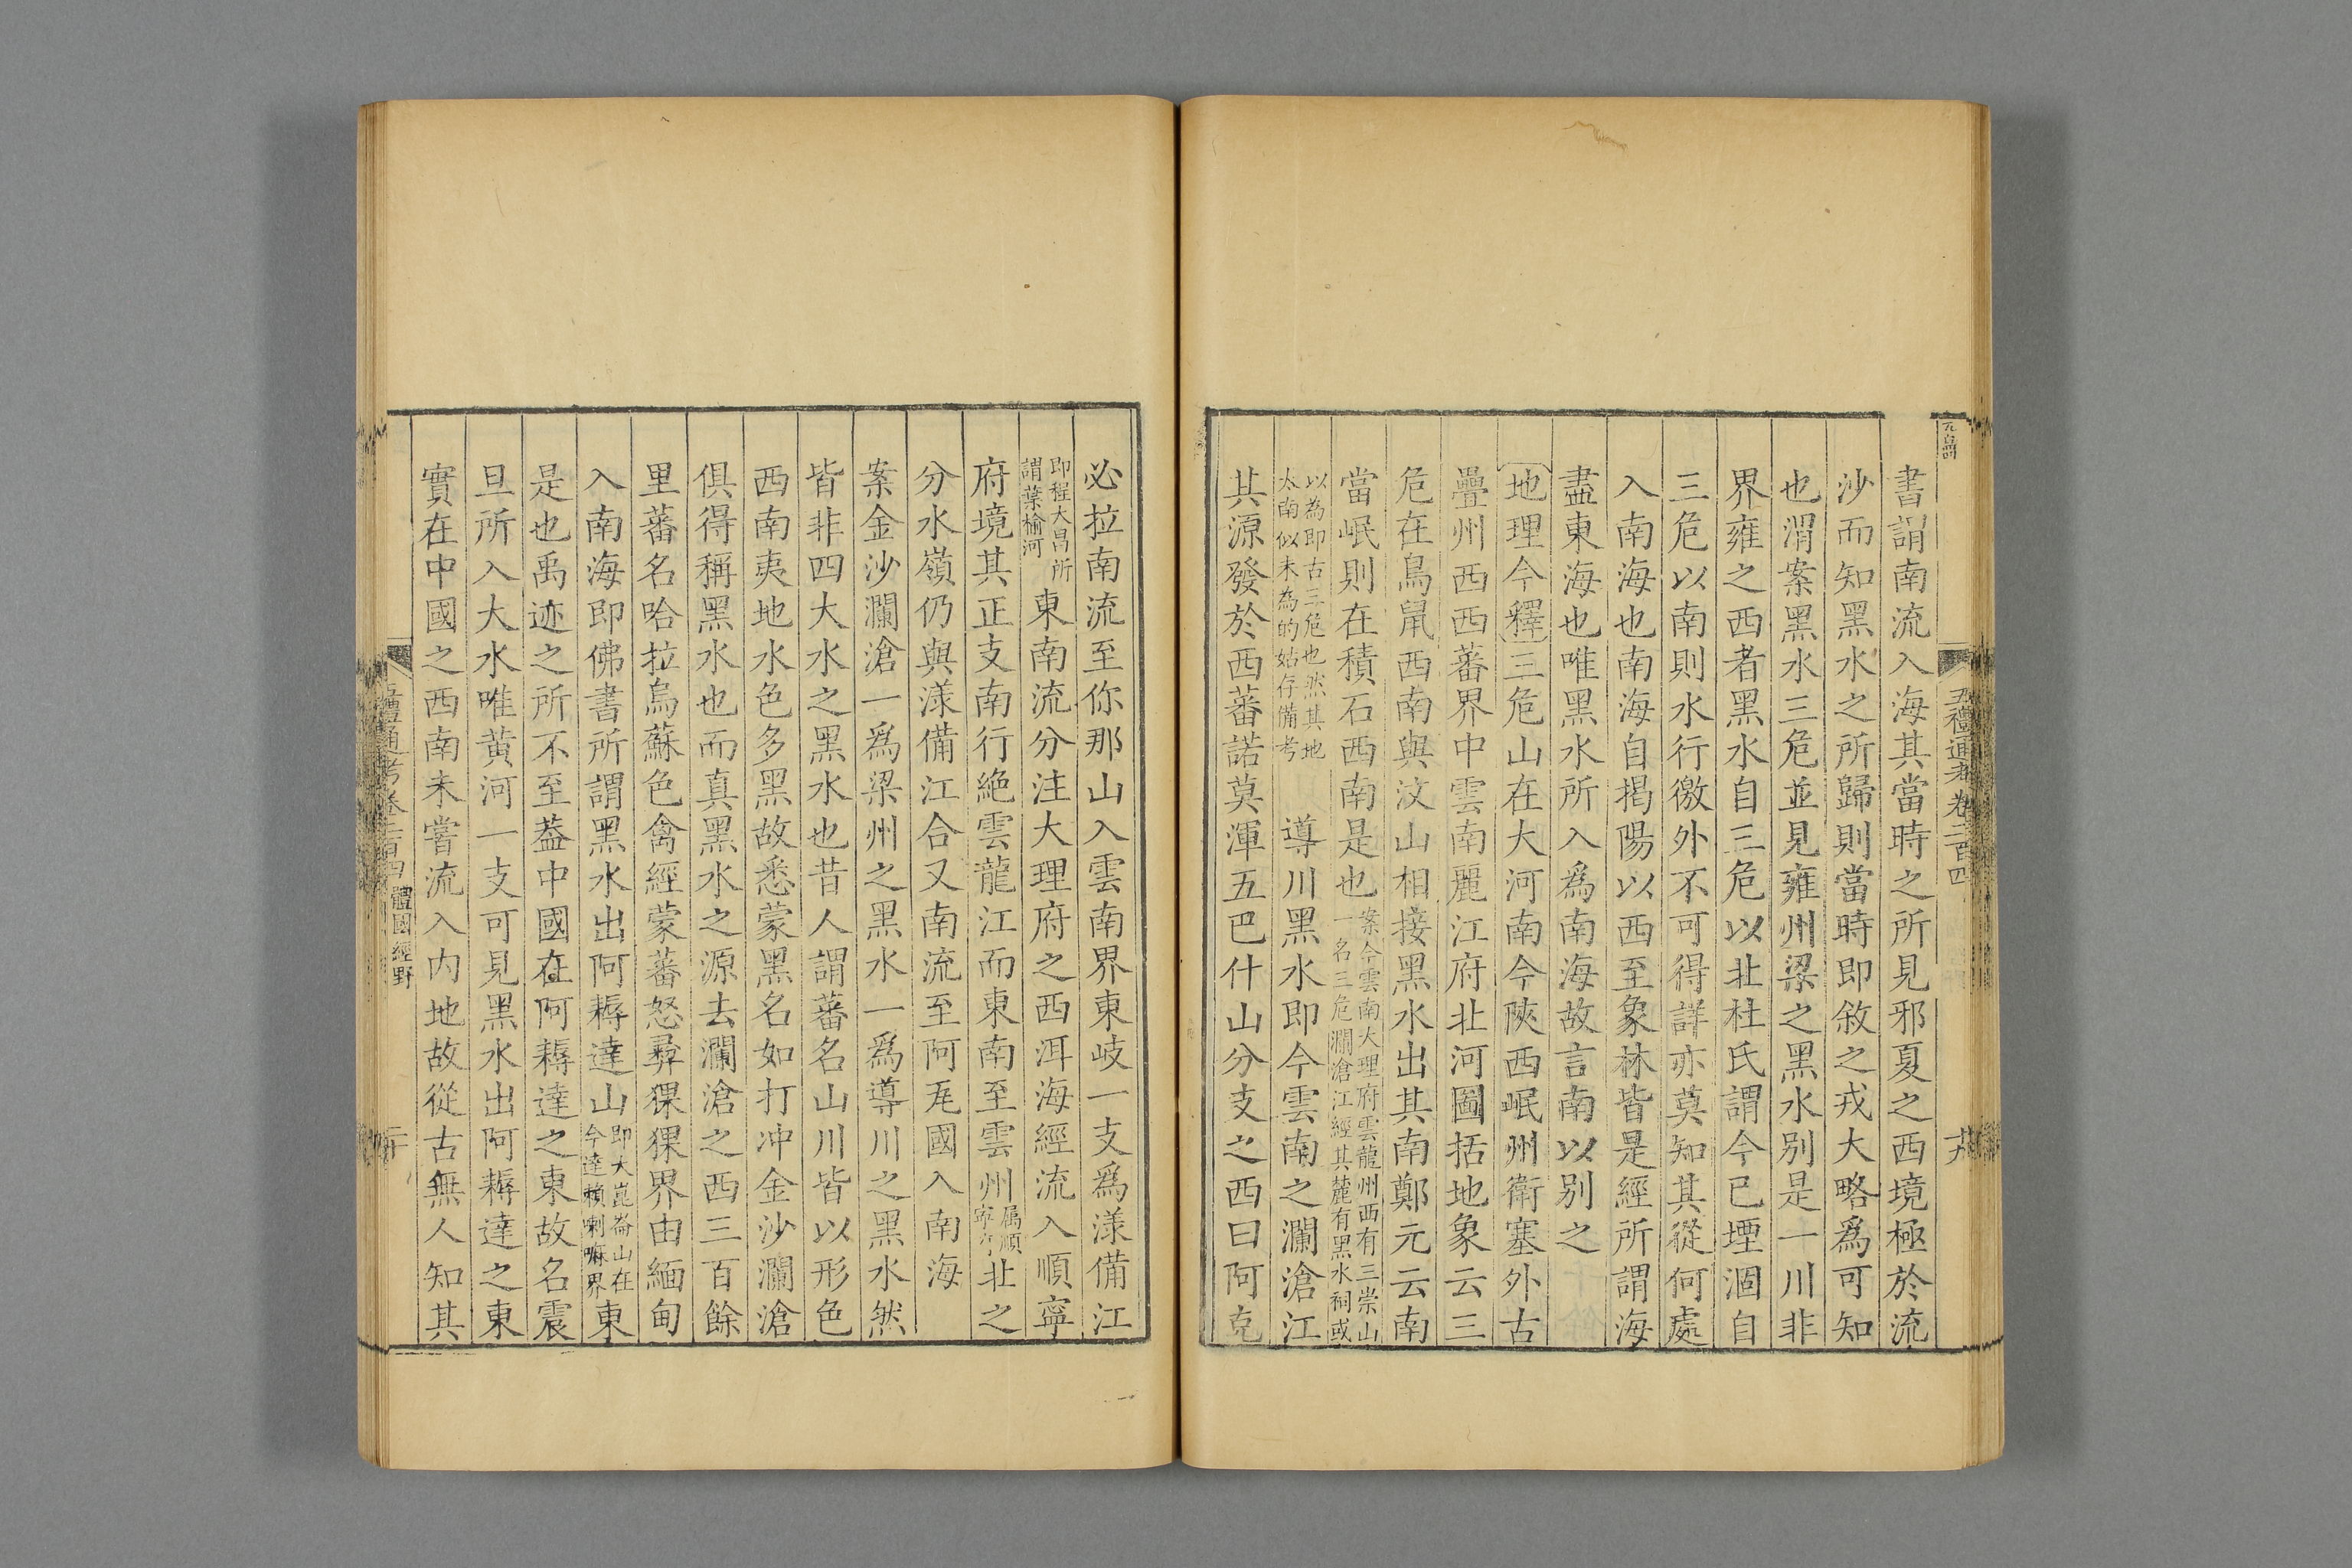 五禮通考卷二百四
書謂南流入海其當時之所見邪夏之西境極於流
沙而知黑水之所歸則當時即敘之戎大略爲可知
也渭案黑水三危並見雍州梁之黑水別是一川非
界雍之西者黑水自三危以北杜氏謂今已堙涸自
三危以南則水行徼外不可得詳亦莫知其從何處
入南海也南海自揭陽以西至象林皆是經所謂海
盡東海也唯黑水所入爲南海故言南以別之
地理今釋三危山在大河南今陝西岷州衛塞外古
疊州西西蕃界中雲南麗江府北河圖括地象云三
危在鳥鼠西南與汶山相接黑水出其南鄭元云南
當岷則在積石西南是也案今雲南大理府雲龍州西有三崇山
一名三危瀾滄江經其麓有黑水祠或
以為即古三危也然其地
太南似未為的姑存備考導川黑水即今雲南之瀾滄江
其源發於西蕃諾莫渾五巴什山分支之西曰阿克
必拉南流至你那山入雲南界東岐一支爲漾備江
即程大昌所
謂葉榆河東南流分注大理府之西洱海經流入順寧
府境其正支南行絶雲龍江而東南至雲州屬順
寧府北之
分水嶺仍與漾備江合又南流至阿瓦國入南海
案金沙瀾滄一爲梁州之黑水一爲導川之黑水然
皆非四大水之黑水也昔人謂蕃名山川皆以形色
西南夷地水色多黑故悉蒙黑名如打冲金沙瀾滄
俱得稱黑水也而真黑水之源去瀾滄之西三百餘
里蕃名哈拉烏蘇色禽經蒙蕃怒彝猓猓界由緬甸
入南海即佛書所謂黑水出阿耨達山即大崑崙山在
今達賴喇嘛界東
是也禹迹之所不至葢中國在阿耨達之東故名震
旦所入大水唯黃河一支可見黑水出阿耨達之東
實在中國之西南未嘗流入内地故從古無人知其
五禮通考卷二百四 體國經野